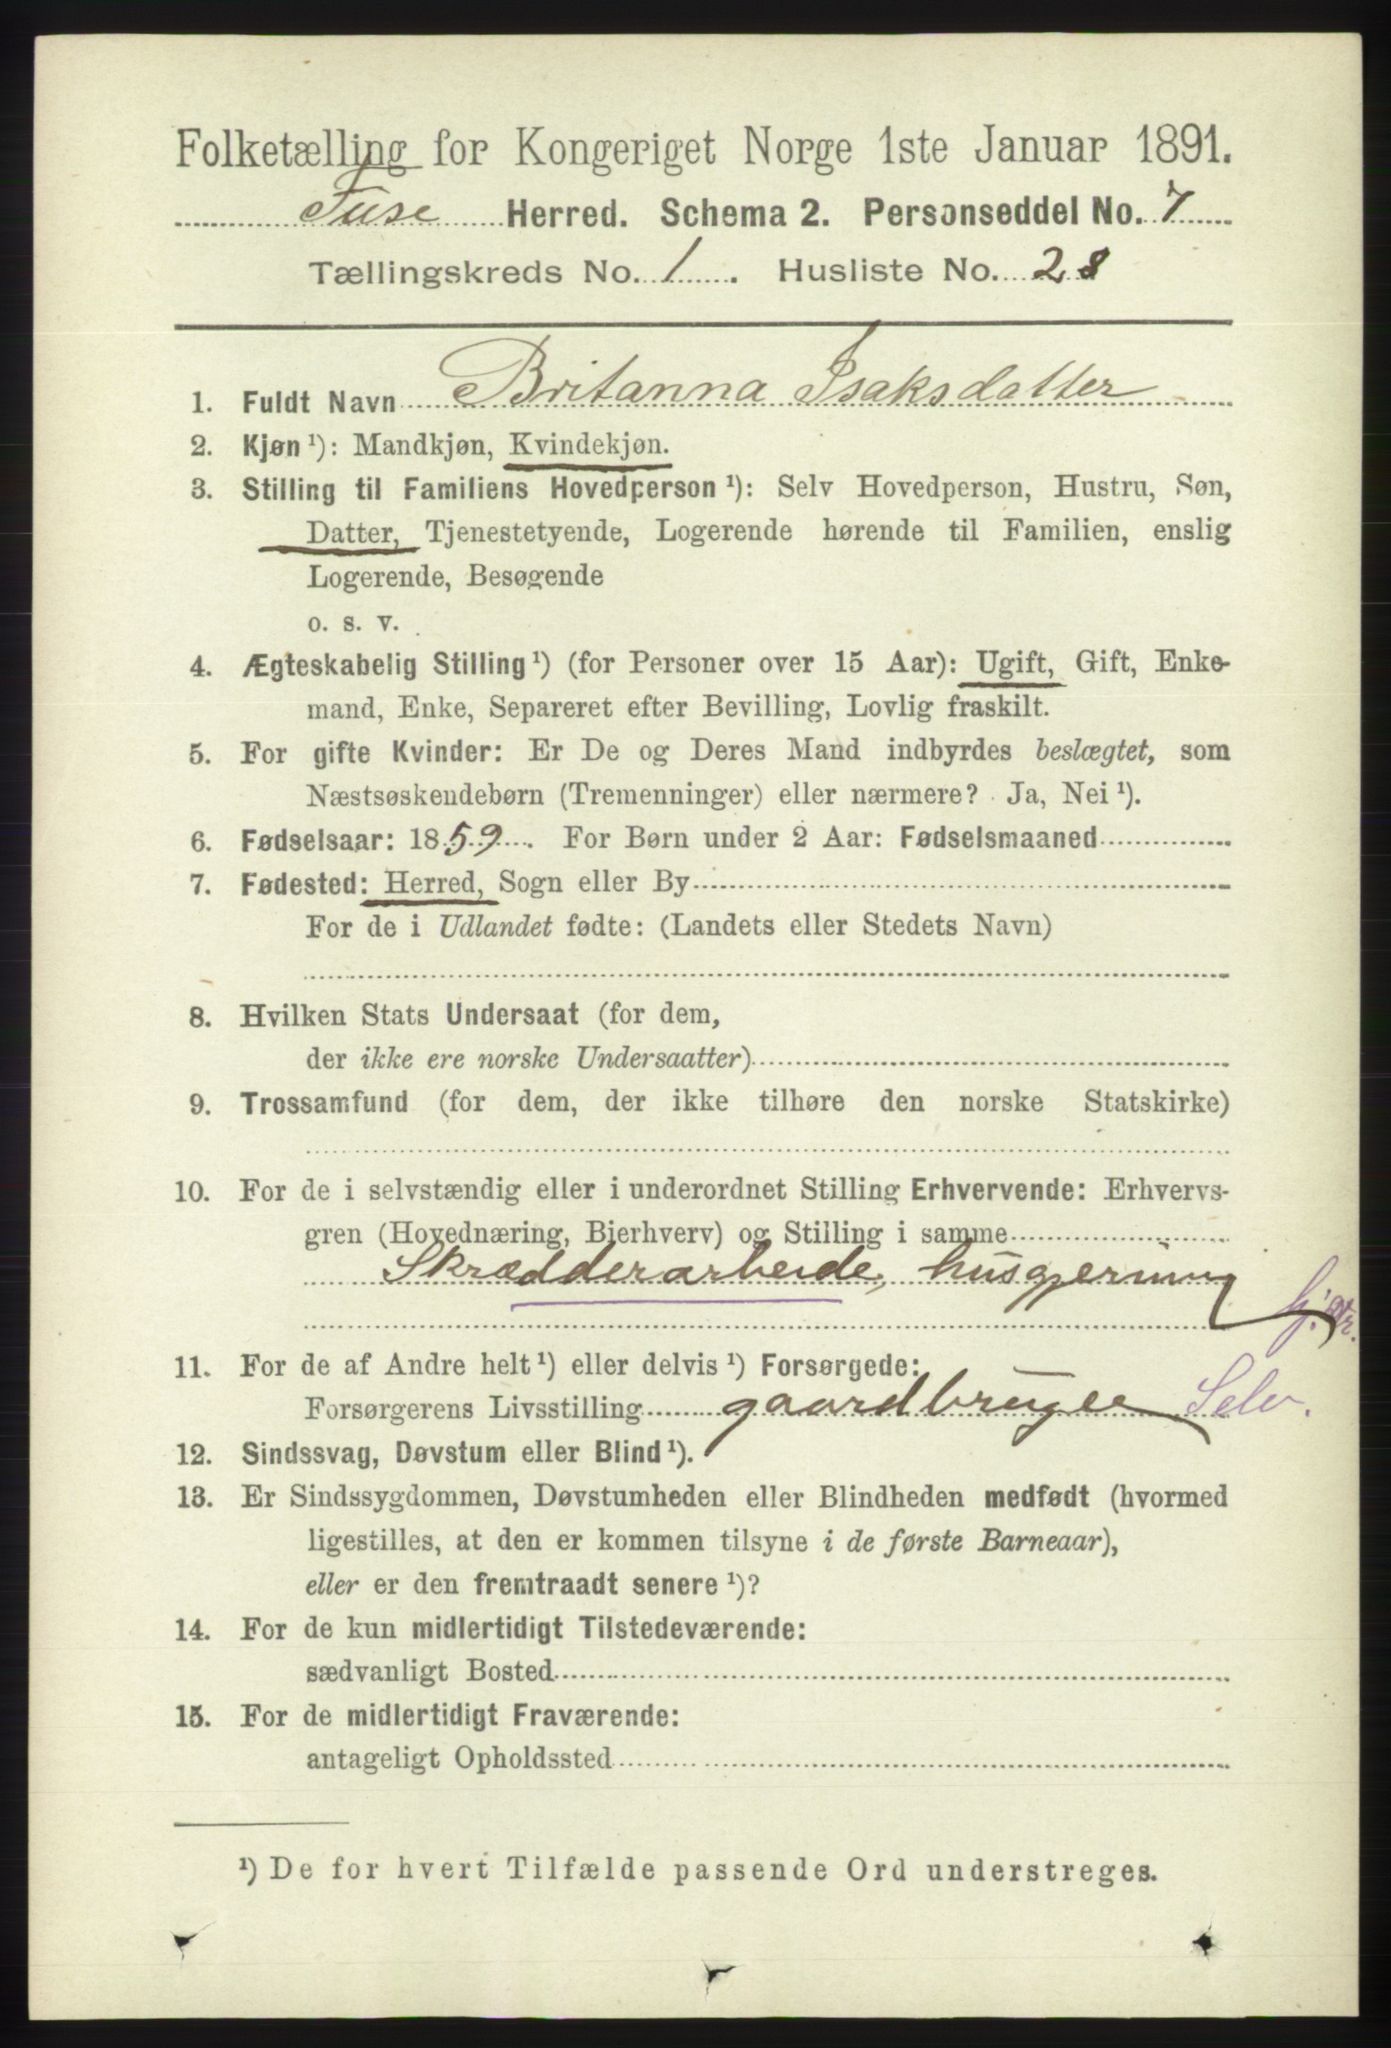 Folketælling for Kongeriget Norge 1ste Januar 1891.
Fuse Herred. Schema 2. Personseddel No. 7
Tællingskreds No. 1. Husliste No. 28
1. Fuldt Navn Britanna Isaksdatter
2. Kjøn ¹): Mandkjøn, Kvindekjøn.
3. Stilling til Familiens Hovedperson ¹): Selv Hovedperson, Hustru, Søn,
Datter, Tjenestetyende, Logerende hørende til Familien, enslig
Logerende, Besøgende
o. s. v.
4. Ægteskabelig Stilling ¹) (for Personer over 15 Aar): Ugift, Gift, Enke-
mand, Enke, Separeret efter Bevilling, Lovlig fraskilt.
5. For gifte Kvinder: Er De og Deres Mand indbyrdes beslægtet, som
Næstsøskendebørn (Tremenninger) eller nærmere? Ja, Nei ¹).
6. Fødselsaar: 1859. For Børn under 2 Aar: Fødselsmaaned
7. Fødested: Herred, Sogn eller By
For de i Udlandet fødte: (Landets eller Stedets Navn)
8. Hvilken Stats Undersaat (for dem,
der ikke ere norske Undersaatter)
9. Trossamfund (for dem, der ikke tilhøre den norske Statskirke)
10. For de i selvstændig eller i underordnet Stilling Erhvervende: Erhvervs-
gren (Hovednæring, Bierhverv) og Stilling i samme
Skrædderarbeide, husgjerning
11. For de af Andre helt ¹) eller delvis ¹) Forsørgede:
Forsørgerens Livsstilling gaardbruger Selv.
12. Sindssvag, Døvstum eller Blind ¹).
13. Er Sindssygdommen, Døvstumheden eller Blindheden medfødt (hvormed
ligestilles, at den er kommen tilsyne i de første Barneaar),
eller er den fremtraadt senere ¹)?
14. For de kun midlertidigt Tilstedeværende:
sædvanligt Bosted
15. For de midlertidigt Fraværende:
antageligt Opholdssted
¹) De for hvert Tilfælde passende Ord understreges.